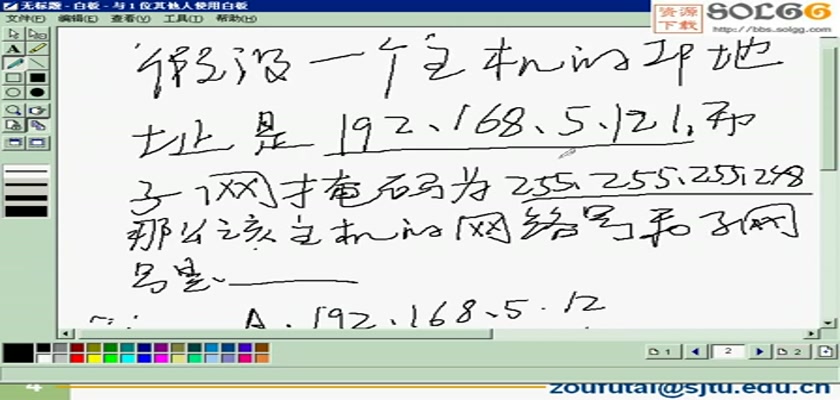 无标题 - 白板 - 与 1 位其他人使用白板
文件(F) 编辑(E) 查看(V) 工具(T) 帮助(H)
资源
下载
SOLGG
http://bbs.solgg.com
A
假设一个主机的IP地
址是192.168.5.121,而
子网掩码为255.255.255.248
那么该主机的网络号和子网
号是
A. 192.168.5.12
1
2
2
4
zoufutai@sjtu.edu.cn